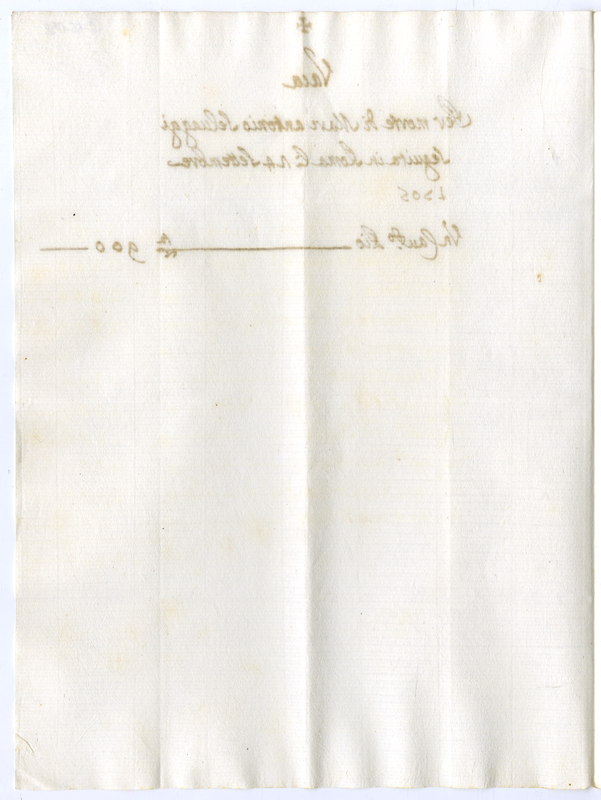 Vaca
Per morte di Marc antonio Seluaggi
seguita in Roma li 14 Settembre
1705
Un Cau.to Pio ——— 900 —